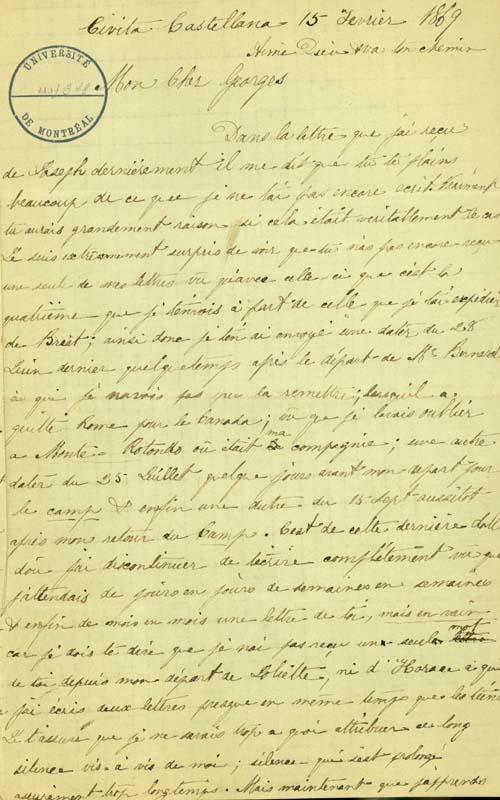 Civita Castellana 15 Fevrier 1869
Aime Dieu & va ton chemin
UNIVERSITÉ
DE MONTRÉAL
Mon Cher Georges
Dans la lettre que j'ai reçu
de Joseph dernièrement il me dit que tu te plains
beaucoup de ce que je ne t'ai pas encore ecrit. Vraiment
tu aurais grandement raison si cela etait veritablement le cas
Je suis extrêmement surpris de voir que tu n'as pas encore reçu
une seule de mes lettres vu qu'avec celle-ci que c'est la
quatrième que je t'envois à part de celle que je t'ai expédier
de Brest; ainsi donc je t'en ai envoyé une dater du 28
Juin dernier quelque temps après le départ de Mr Bernard
à qui je n'avois pas pu la remettre; lorsqu'il a
quitté Rome pour le Canada; vu que je l'avais oublier
a Monte-Rotondo où était ma compagnie; une autre
dater du 25 Juillet quelque jours avant mon depart pour
le camp & enfin une autre du 15 Sept aussitot
après mon retour du Camp. C'est de cette dernière date
d'où j'ai discontinuer de t'écrire complétement vu que
j'attendais de jours en jours de semaines en semaines
& enfin de mois en mois une lettre de toi, mais en vain
car je dois te dire que je n'ai pas reçu un seul mot
de toi depuis mon départ de Joliette, ni d'Horace à qui
j'ai écris deux lettres presque en même temps que les tiennes
Je t'assure que je ne sarais trop a quoi attribuer ce long
silence vis-à-vis de moi; silence qui s'est prolongé
assurément trop longtemps. Mais maintenant que j'apprends